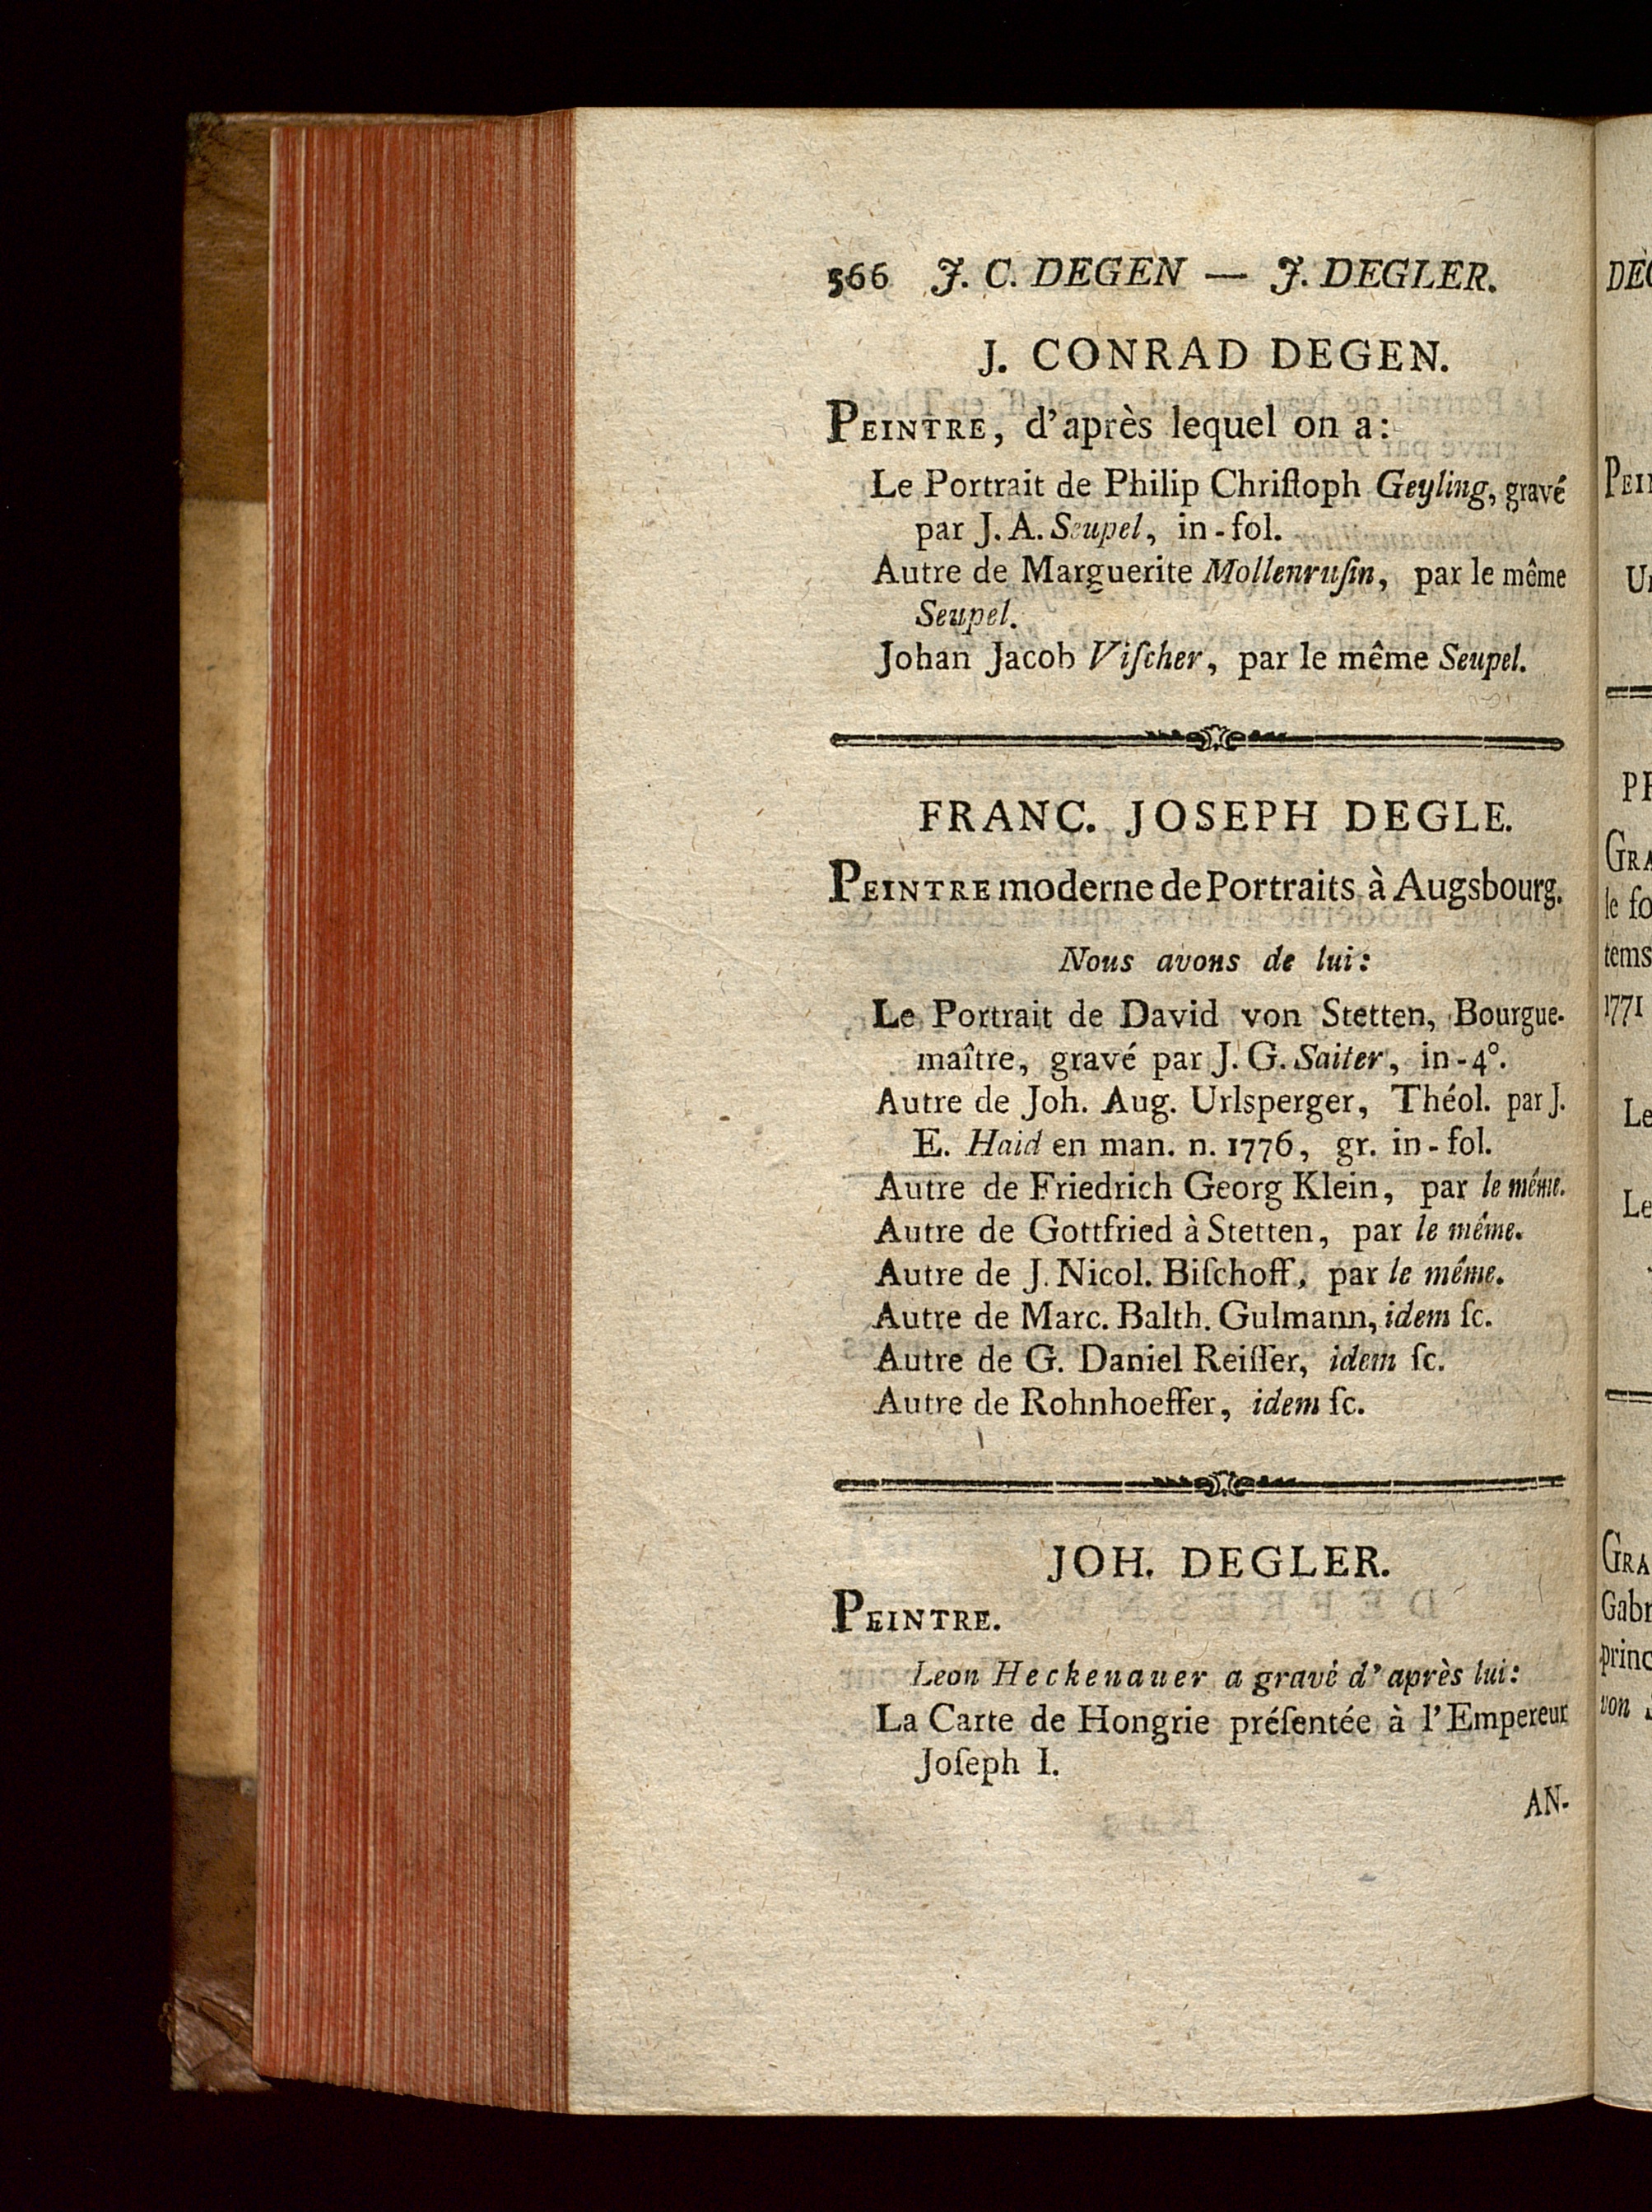 566 J. C. DEGEN — J. DEGLER.
J. CONRAD DEGEN.
PEINTRE, d'après lequel on a:
Le Portrait de Philip Chriſtoph Geyling, gravé
par J. A. Seupel, in-fol.
Autre de Marguerite Mollenruſin, par le même
Seupel.
Johan Jacob Viſcher, par le même Seupel.
FRANC. JOSEPH DEGLE.
PEINTRE moderne de Portraits à Augsbourg.
Nous avons de lui:
Le Portrait de David von Stetten, Bourgue-
maître, gravé par J. G. Saiter, in-4°.
Autre de Joh. Aug. Urlsperger, Théol. par J.
E. Haid en man. n. 1776, gr. in-fol.
Autre de Friedrich Georg Klein, par le même.
Autre de Gottfried à Stetten, par le même.
Autre de J. Nicol. Biſchoff, par le même.
Autre de Marc. Balth. Gulmann, idem ſc.
Autre de G. Daniel Reiſſer, idem ſc.
Autre de Rohnhoeffer, idem ſc.
JOH. DEGLER.
PEINTRE.
Leon Heckenauer a gravé d'après lui:
La Carte de Hongrie préſentée à l'Empereur
Joſeph I.
AN-
PEI
U
GRA
le fo
tems
1771
Le
Le
GRA
Gabr
princ
von